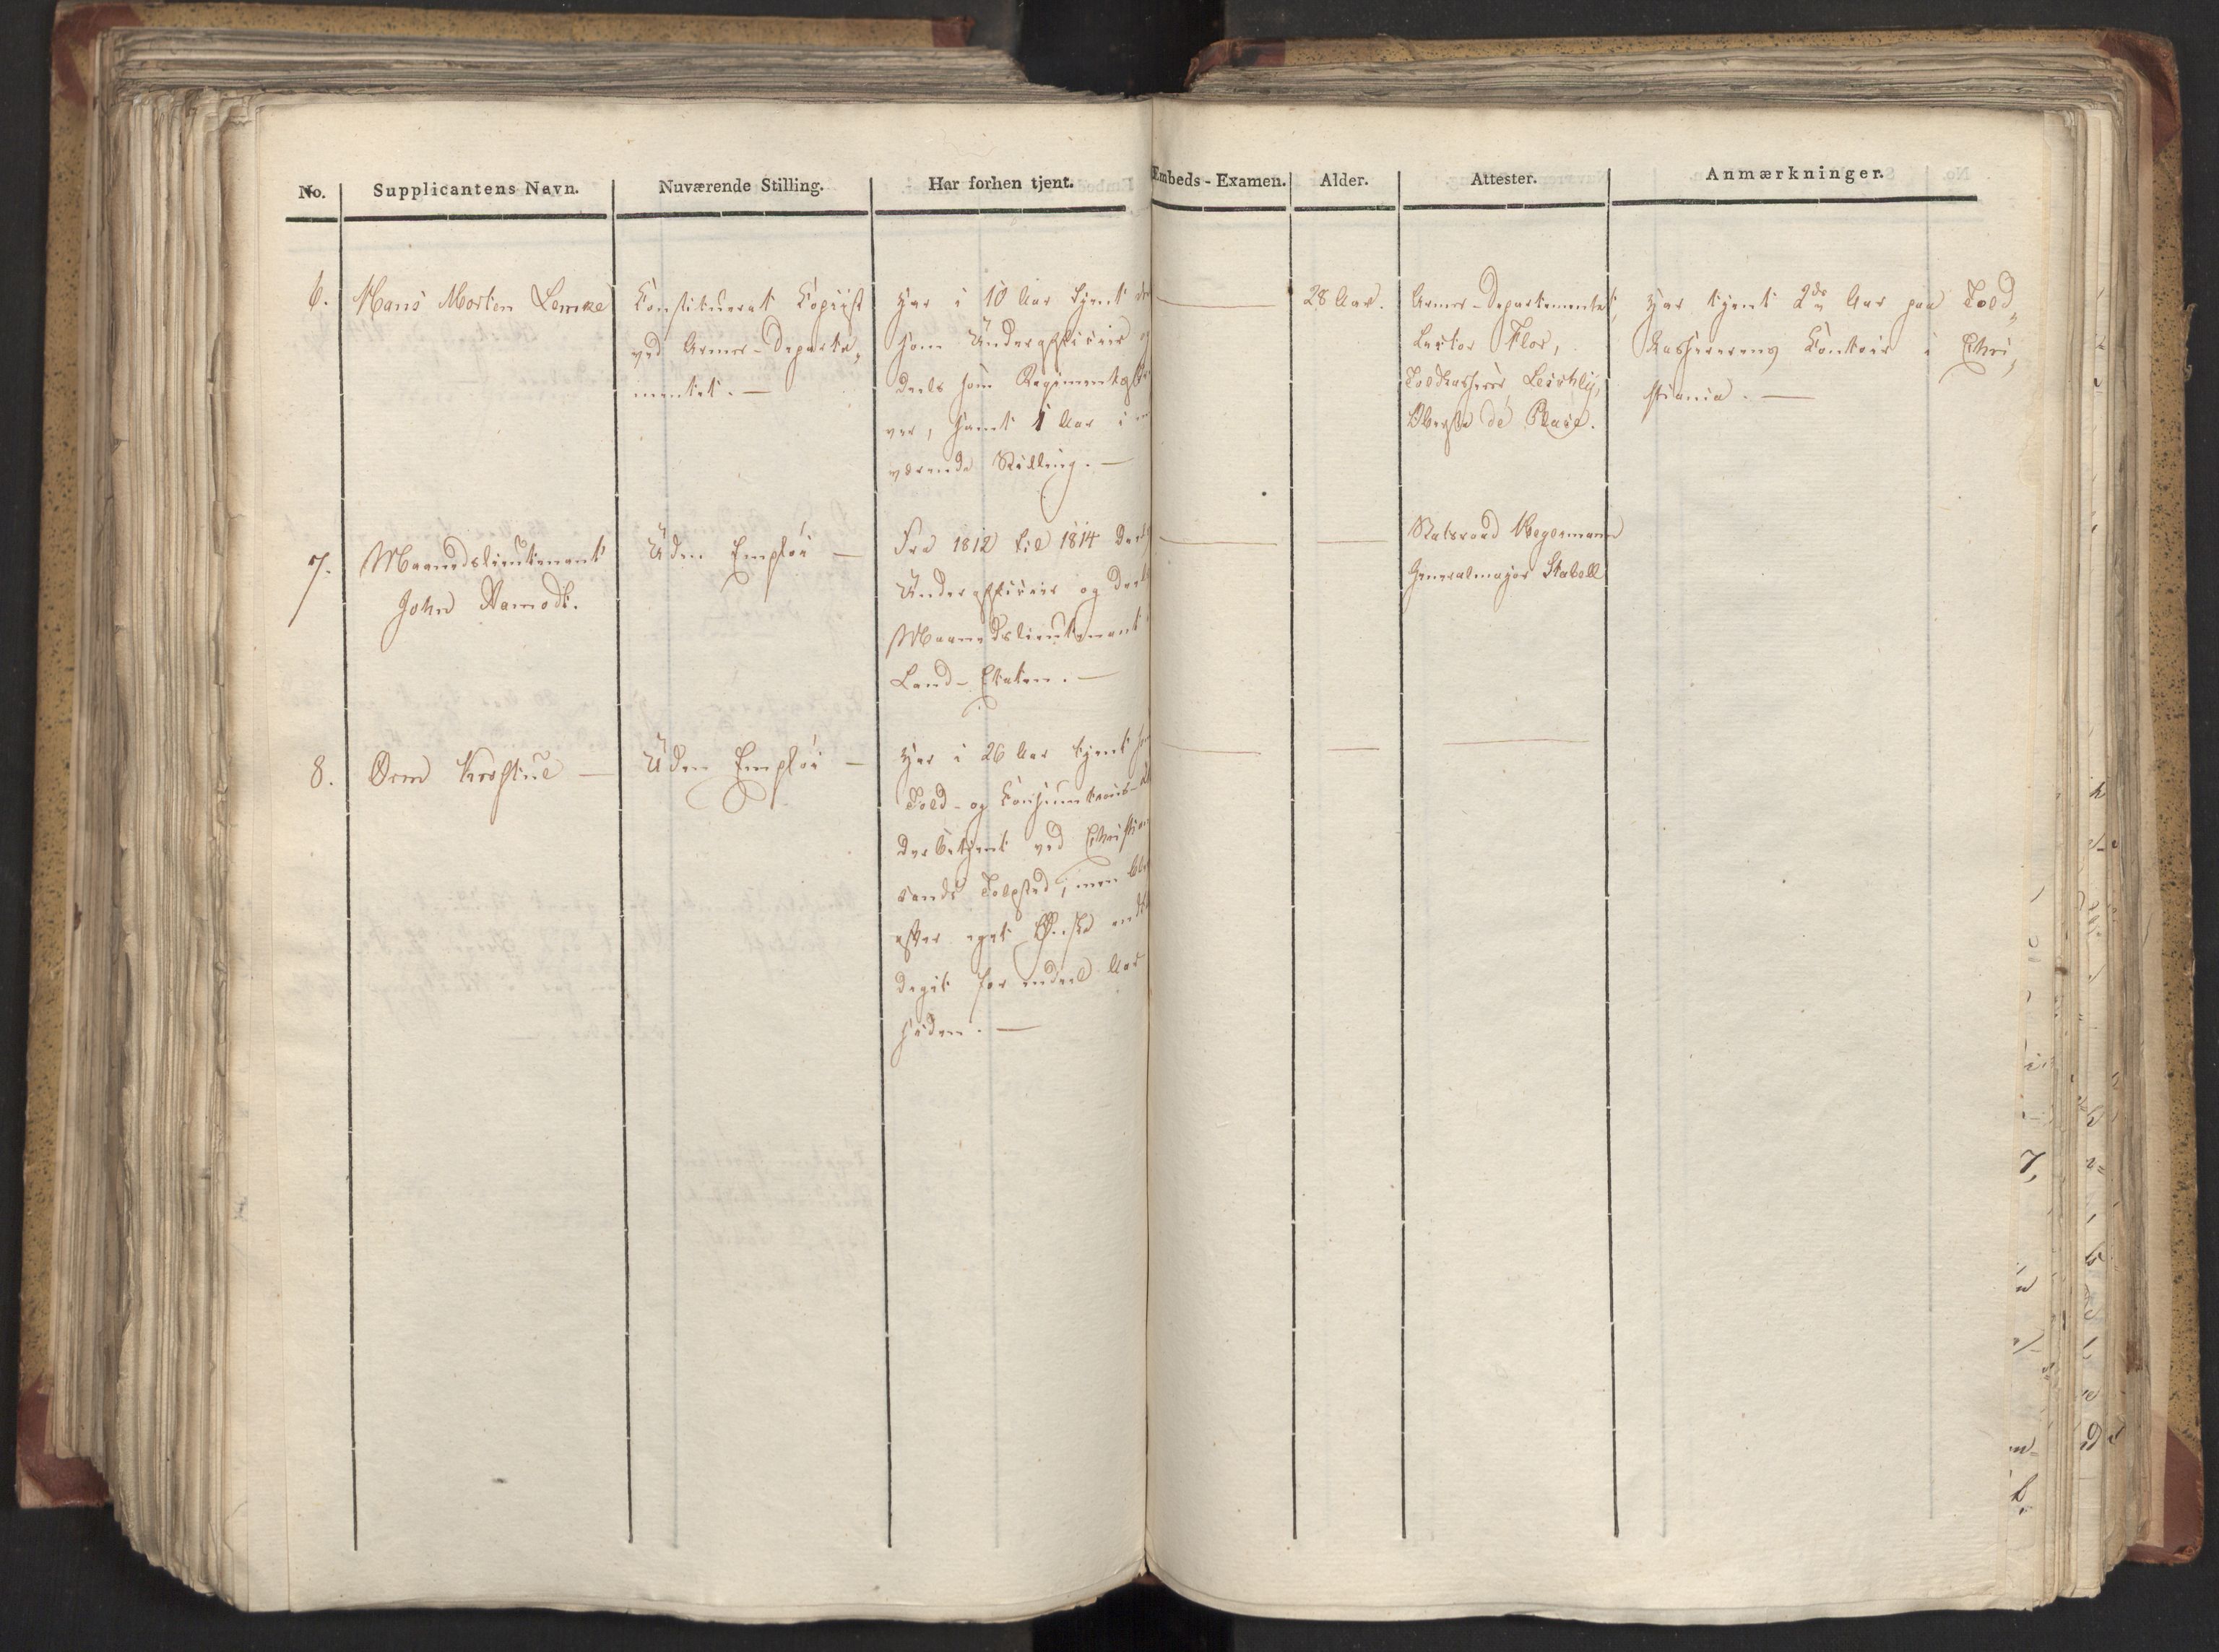 No. Supplicantens Navn. Nuværende Stilling. Har forhen tjent. Embeds-Examen. Alder. Attester. Anmærkninger.
6. Hans Morten Lemke
Constitueret Copiist
ved Armee-Departe„
mentet. —
Har i 10 Aar tjent
som Underofficeer
deels som Regiments
ver, samt 1 Aar i
værende Stilling. —
28 Aar.
Armee-Departementet,
Lector Flor,
Toldkasserer
Oberst de Place.
Har tjent 2de Aar paa Told„
kassererens Contoir i Chri„
stiania. —
7. Maanedslieutenant
John Hamodt.
Uden Emploi —
Fra 1812 til 1814 deels
Underofficeer og deels
Maanedslieutenant
Land-Etaten. —
Statsraad Hegermann
Generalmajor Stabell
8. Orm —
Uden Emploi —
Har i 26 Aar tjent som
Told- og Consumtions-
derbetjent ved Christian
sands Toldsted; men blev
efter eget Ønske
diget for endeel Aar
siden. —